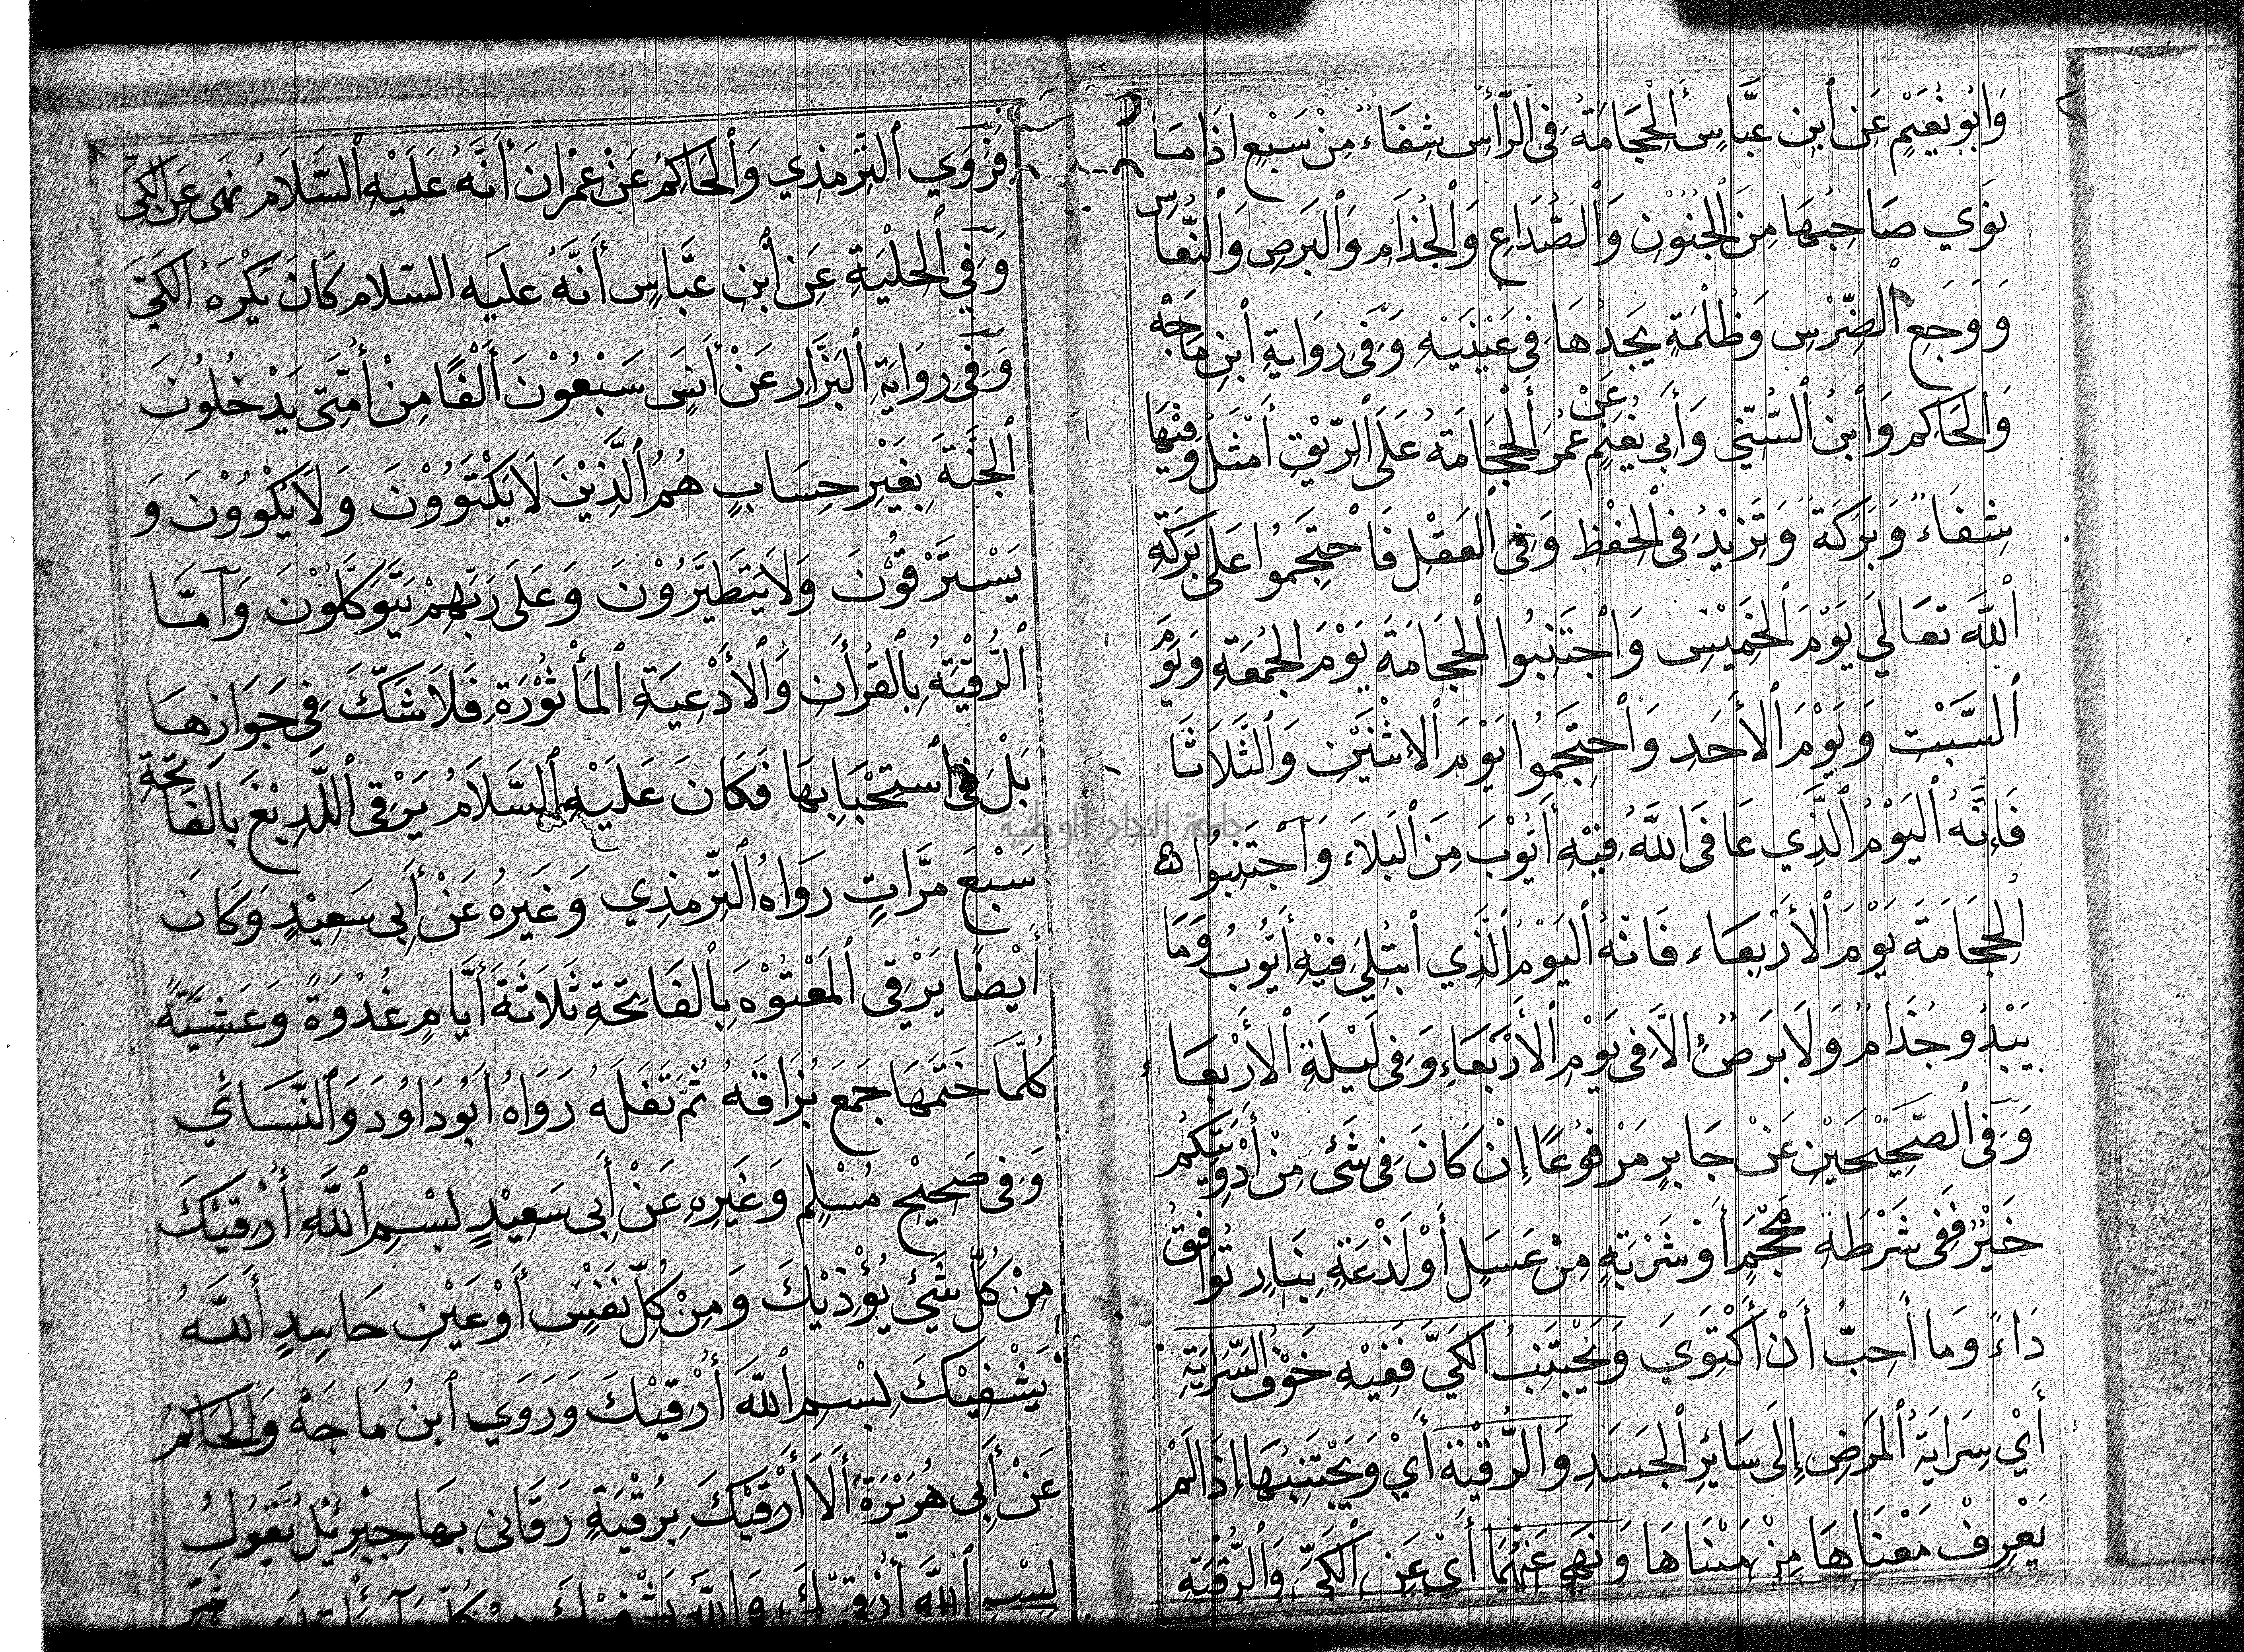 وَابُو نُعَيْمٍ عَن ٱبن عبَّاسٍ ٱلْحِجَامَةُ فِى الرَّأْس شِفَاءٌ مِنْ سَبْعٍ اذَا مَا
نوَي صَاحِبُهَا مِنَ الْجُنُوْن وَٱلصُّدَاعِ وَٱلْجُذَام وَٱلبَرصِ وَٱلنُّعَاسِ
وَوَجعِ الضِّرْسِ وَظُلْمَةٍ يَجدُهَا فِى عَيْنَيْهِ وَفِى رِوَايةِ ٱبنِ مَاجَهْ
وَالحَاكِم وَٱبنُ السُّنّي وَأَبي نُعَيْمٍ عَنْ عُمَرَ أَلْحِجَامَةُ عَلَى ٱلرّيْقِ أَمْثَلُ وَفِيْهَا
شِفَاءٌ وَبَرَكَةٌ وَتَزيْدُ فِى الْحِفْظِ وَفِى الْعَقْلِ فَاحْتَجِمُوا عَلى بَرَكَةِ
ٱللَّه تعَالَي يَوْمَ الْخَمِيْسِ وَاجْتَنِبُوا الْحِجَامَةَ يَوْمَ الجُمْعَةِ وَيَوْمَ
ٱلسَّبْت وَيَوْمَ ٱلأَحَدِ وَٱحْتَجِمُوا يَوْمَ ٱلاِثْنَيْن وَٱلثَّلَاثَا
فَإِنَّهُ ٱلْيَوْمُ ٱلَّذِي عَافَى اللَّهُ فِيْهِ أَيُّوْبَ مِنَ ٱلْبَلَاءِ وَاجْتَنِبُوا
الحِجَامَةَ يَوْمَ ٱلأَرْبِعَاءِ فَانّهُ اليَوْمُ ٱلَّذِي ٱبتُلِيَ فِيْهِ أَيُّوبُ وَمَا
يَبْدُو جُذَامٌ وَلَا بَرَصٌ إِلاَّ فِى يَوْمِ ٱلأَرْبَعَاءِ وَفِى لَيْلَةِ ٱلأرْبعَاءِ
وَفِى ٱلصَّحِيْحَيْنِ عَنْ جَابرٍ مَرْفُوْعًا إِنْ كَانَ فِى شَئ مِنْ أَدْوِيَتِكُم
خَيْرٌ فَفِى شَرْطَةِ مَحْجَمٍ أَوْ شَرْبَةٍ مِنْ عَسَلٍ أَوْ لَذْعَةٍ بِنَارٍ تُوَافِقُ
دَاءً وَمَا أُحِبُّ أَنْ أَكْتَوَيَ وَيَجْتَنِبُ الكَيَّ فَفِيْهِ خَوْفُ السِّرَايَةِ
أَيْ سِرَايَةُ ٱلمَرَضِ إِلَى سَائِرِ ٱلجَسَدِ وَالرُّقْيَةَ أَيْ وَيَجْتَنِبُهَا إِذَا لَمْ
يَعْرِفْ مَعْنَاهَا مِنْ مَبْنَاهَا وَنَهي عَنْهُمَا أَيْ عَنِ ٱلْكَيِّ وَالرُّقْيَةِ
فَرَوَي ٱلتِّرْمذِي وَٱلْحَاكِمُ عَنْ عِمْرانَ أَنَّهُ عَلَيْهِ ٱلسَّلَامُ نَهَى عَنِ الْكَيِّ
وَفِي الحِلْيَةِ عَنِ ٱبْنِ عَبَّاسٍ أَنَّهُ عليَه السّلام كَانَ يَكْرَهُ الكَيَّ
وَفِى رِوَايَةِ ٱلْبَزَّار عَنْ أَنَسٍ سَبْعُوْنَ أَلْفًا مِنْ أُمَّتِى يَدْخلُونَ
ٱلْجَنَّةَ بِغَيْرِ حِسَابٍ هُمُ ٱلَّذِيْنَ لَا يَكْتَوُوْنَ وَلَا يَكْوُوْنَ وَ
يَسْتَرْقُوْنَ وَلَا يَتَطَيَّرُوْنَ وَعَلَى رَبِّهِمْ يَتَوَكَّلُوْنَ وَآمَّا
ٱلرُّقْيَةُ بِالقُرأَن وَالْأَدْعِيَةِ ٱلمَأْثُوْرَةِ فَلَا شَكَّ فِى جَوَازِهَا
بَلْ فِى ٱستِحْبَابِهَا فَكَانَ عَلَيْهِ ٱلسَّلَامُ يَرْقِى ٱللَّدِيْغَ بِالْفَاتِحَةِ
سَبْعَ مَرَّاتٍ رَوَاهُ التِّرْمذِي وَغَيرُهُ عَنْ أَبِى سَعِيْدٍ وَكَانَ
أَيْضًا يَرْقِى ٱلمَعْتُوْهَ بِٱلفَاتِحَةِ ثَلَاثَةَ أَيَّامٍ غُدْوَةً وَعَشِيَّةً
كُلَّمَا خَتَمَهَا جَمَعَ بُزَاقَهُ ثُمَّ تَفَلَهُ رَوَاهُ أَبُو دَاوُدَ وَٱلنَّسَائي
وَفِى صَحِيْحِ مُسْلِمٍ وَغَيرِهِ عَنْ أَبِى سَعِيْدٍ بسْمِ ٱللَّهِ أَرْقيْكَ
مِنْ كُلِّ شَيْءٍ يُؤْذيْكَ وَمِنْ كُلِّ نَفْسٍ أَوْ عَيْنِ حَاسِدٍ أَللَّهُ
يَشْفيْكَ بِسْمِ ٱللّهَ أَرْقيْكَ وَرَوَي ٱبنُ مَاجَهْ وَالحَاكِمُ
عَنْ أَبِى هُرَيْرَةَ أَلَا أَرْقِيْكَ بِرُقْيَةٍ رَقَانى بهَا جِبْرِئيْل يَقُولُ
بِسْمِ ٱللَّهِ أَرْقِيْكَ وَاللَّهُ يَشْفِيْكَ مِنْ كُلِّ
جامعة النجاح الوطنية